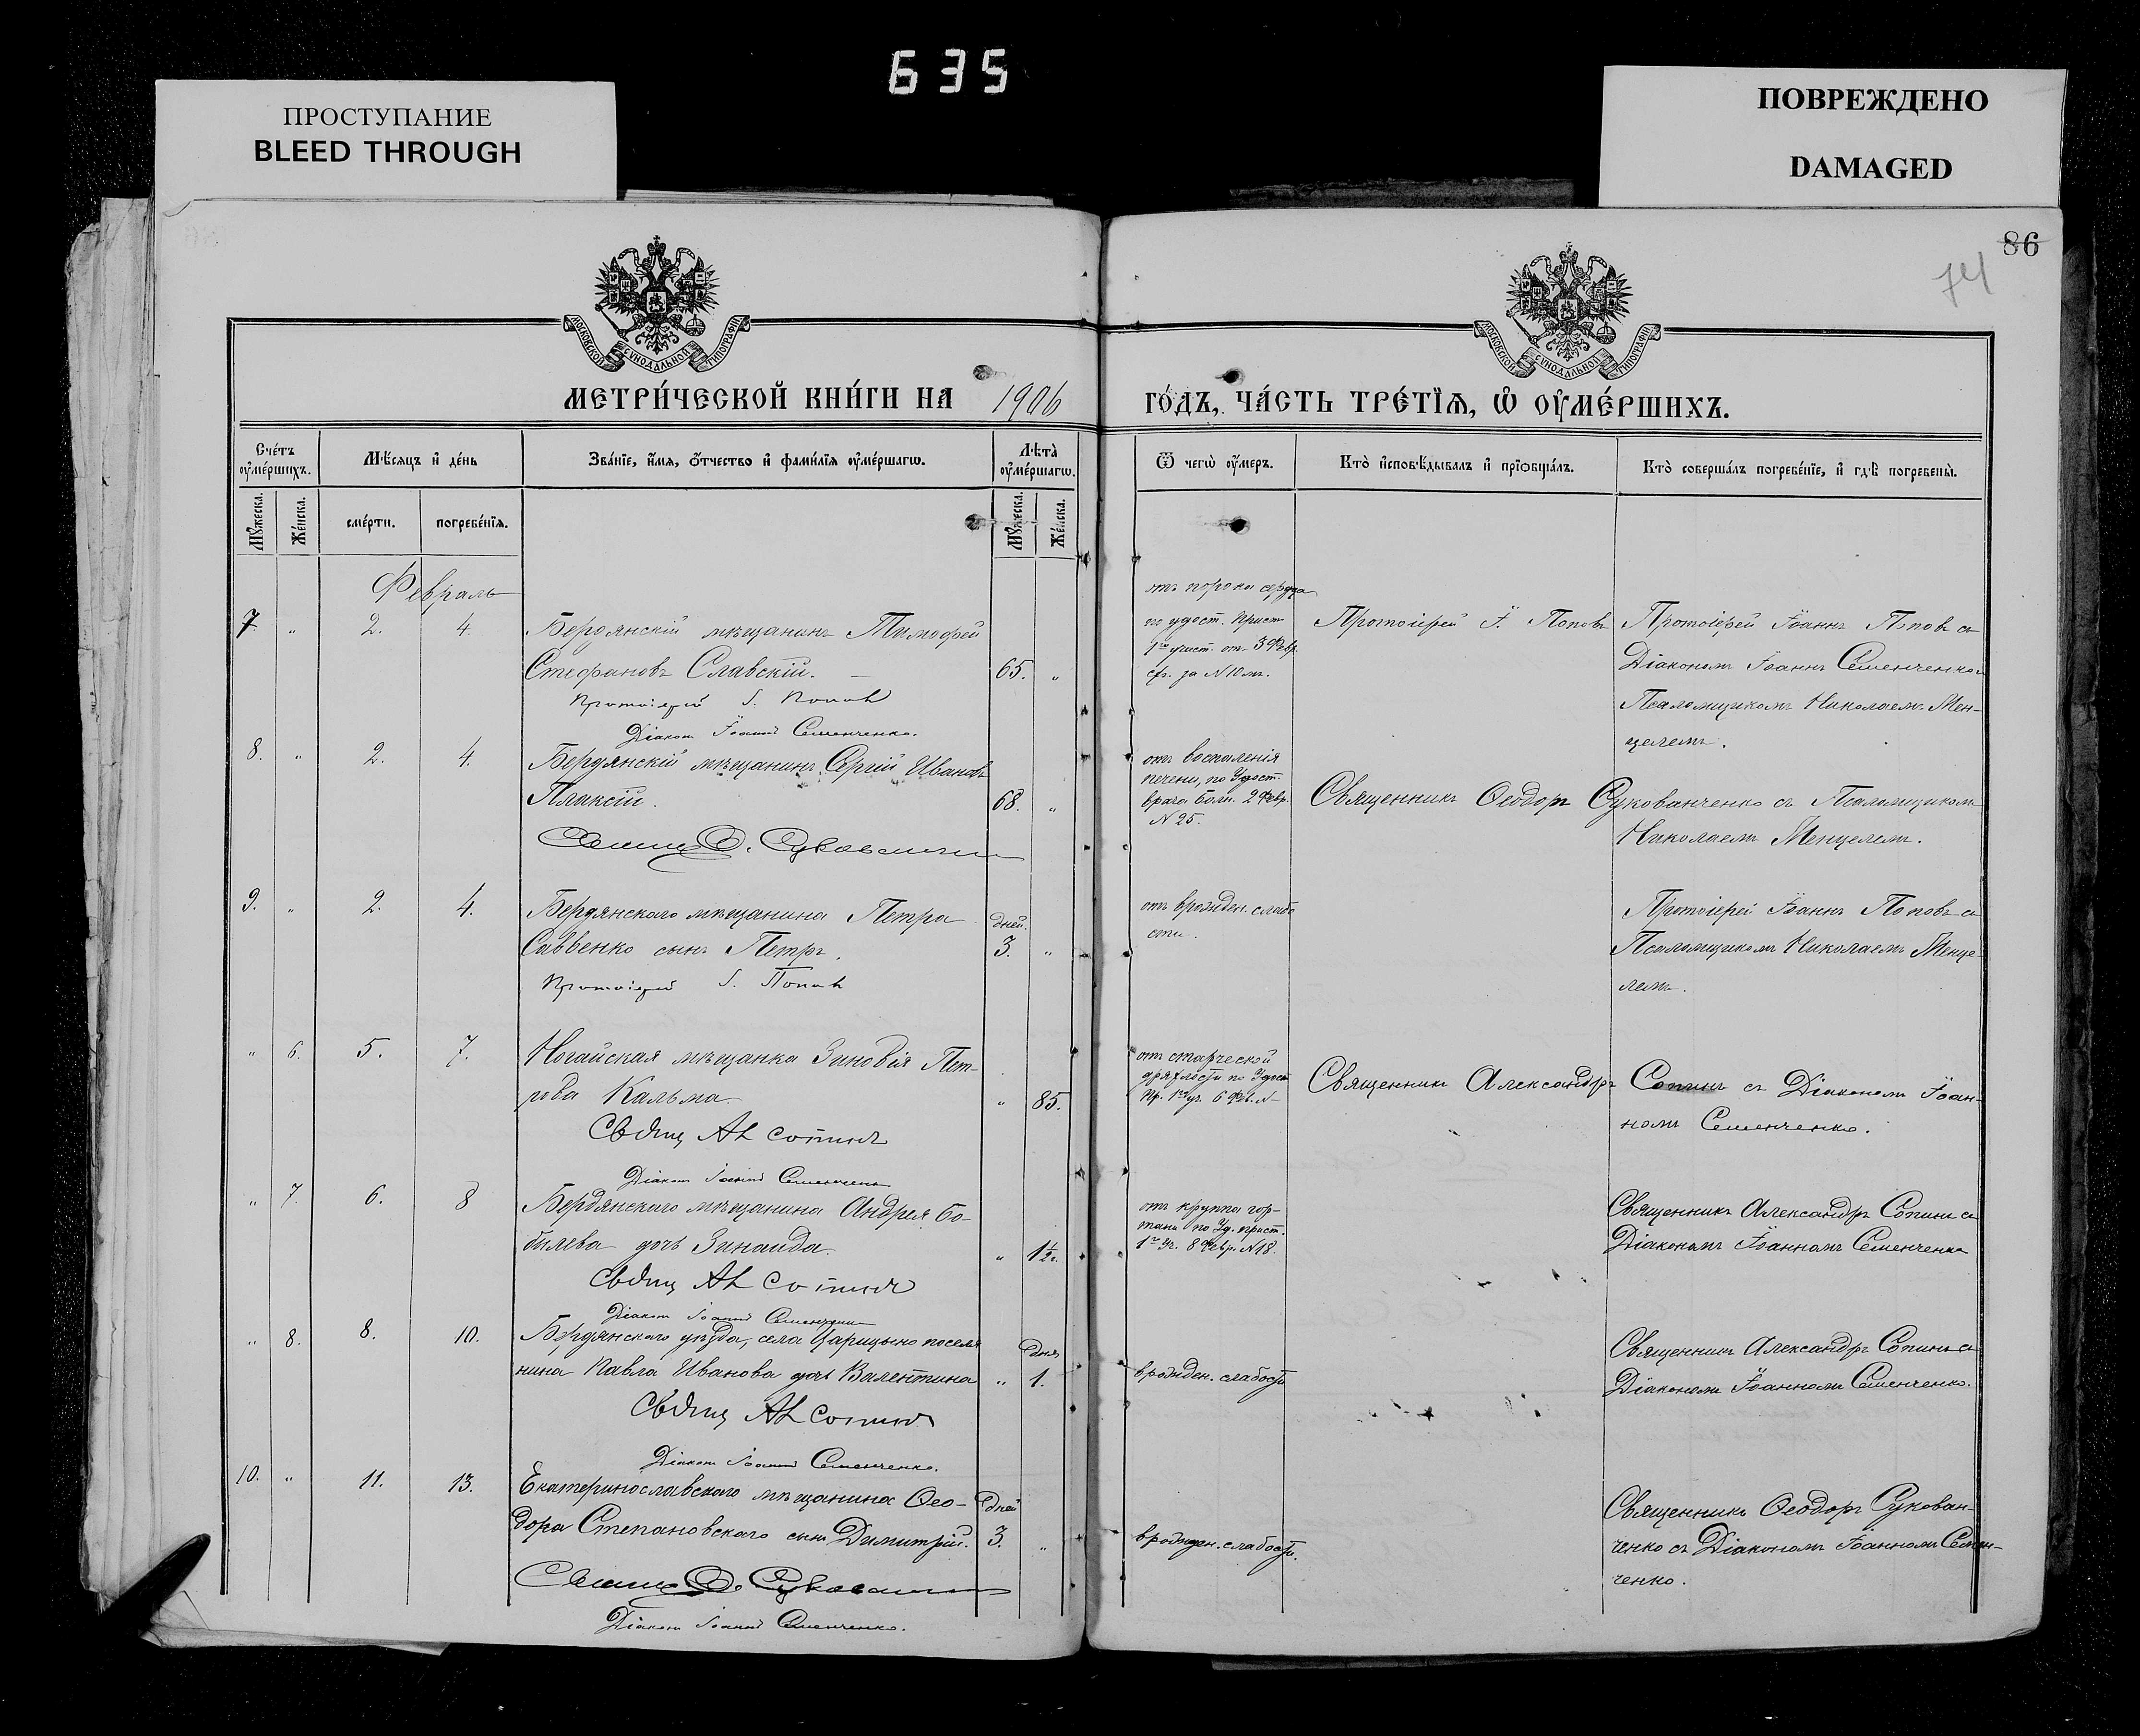 635
ПРОСТУПАНИЕ
BLEED THROUGH
ПОВРЕЖДЕНО
DAMAGED
86
74
МОСКОВСКОЙ СѴНОДАЛЬНОЙ ТИПОГРАФІИ
МОСКОВСКОЙ СѴНОДАЛЬНОЙ ТИПОГРАФІИ
МЕТРИ́ЧЕСКОЙ КНИ́ГИ НА 1906 ГО́ДЪ, ЧА́СТЬ ТРЕ́ТЇѦ, Ѡ҆ ОУ҆МЕ́РШИХЪ.
Сче́тъ оу҆ме́ршихъ.
Мѣ́сяцъ и҆ де́нь
Зва́нїе, и҆́мѧ, ѻ҆́тчество и҆ фами́лїѧ оу҆ме́ршагѡ.
Лѣ́та оу҆ме́ршагѡ.
Ѿ чегѡ̀ оу҆́меръ.
Кто̀ и҆сповѣ́дывалъ и҆ прїѡбща́лъ.
Кто̀ соверша́лъ погребе́нїе, и҆ гдѣ̀ погребены̀.
Мꙋ́жеска.
Же́нска.
сме́рти.
погребе́нїѧ.
Мꙋ́жеска.
Же́нска.
Февраль
7. " 2. 4.
Бердянскій мѣщанинъ Тимофей
Стефановъ Славскій. 65. "
Протоіерей І. Поповъ
Діаконъ Іоаннъ Семенченко.
отъ порока сердца
по удост. Прист.
1го участ. от 3 Февр.
за №10мъ.
Протоіерей І. Поповъ
Протоіерей Іоаннъ Поповъ съ
Діакономъ Іоаннъ Семенченко и
Псаломщикомъ Николаемъ Мен-
целемъ.
8. " 2. 4.
Бердянскій мѣщанинъ Сергій Ивановъ
Плаксій. 68. "
Священ. Ѳ. Сукованченко
отъ воспаленія
печени, по Удост.
врача Больн. 2 Февр.
№25.
Священникъ Ѳеодоръ Сукованченко съ Псаломщикомъ
Николаемъ Менцелемъ.
9. " 2. 4.
Бердянскаго мѣщанина Петра
Савенко сынъ Петръ. дней 3. "
Протоіерей І. Поповъ
отъ врожден. слабо
сти.
Протоіерей Іоаннъ Поповъ съ
Псаломщикомъ Николаемъ Менце-
лемъ.
" 6. 5. 7.
Ногайская мѣщанка Зиновія Пет-
рова Кальма. " 85.
Свящ Ал Сопинъ
Діаконъ Іоаннъ Семенченко
отъ старческой
дряхлости по Удост
Пр. 1го уч. 6 Фев. №
Священникъ Александръ Сопинъ съ Діакономъ Іоан-
номъ Семенченко.
" 7. 6. 8
Бердянскаго мѣщанина Андрея Бо-
билева дочь Зинаида. " 1½г.
Свящ Ал Сопинъ
Діаконъ Іоаннъ Семенченко
отъ круппа гор-
тани по Уд. прист.
1го Уч. 8 Февр. №18.
Священникъ Александръ Сопинъ съ
Діакономъ Іоанномъ Семенченко
" 8. 8. 10.
Бердянскаго уѣзда, села Царицыно поселя
нина Павла Иванова дочь Валентина " дня 1.
Свящ Ал Сопинъ
Діаконъ Іоаннъ Семенченко.
врожден. слабости
Священникъ Александръ Сопинъ съ
Діакономъ Іоанномъ Семенченко.
10. " 11. 13.
Екатеринославскаго мѣщанина Ѳео-
дора Степановскаго сынъ Димитрій. дней 3. "
Священ. Ѳ. Сукованченко
Діаконъ Іоаннъ Семенченко.
врожден. слабости.
Священникъ Ѳеодоръ Сукован-
ченко съ Діакономъ Іоанномъ Семен-
ченко.